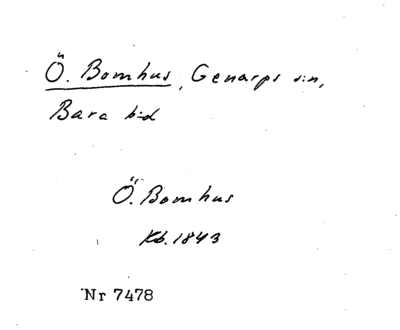 Ö. Bomhus, Genarps s:n,
Bara h:d
Ö. Bomhus
Kb. 1843
Nr 7478